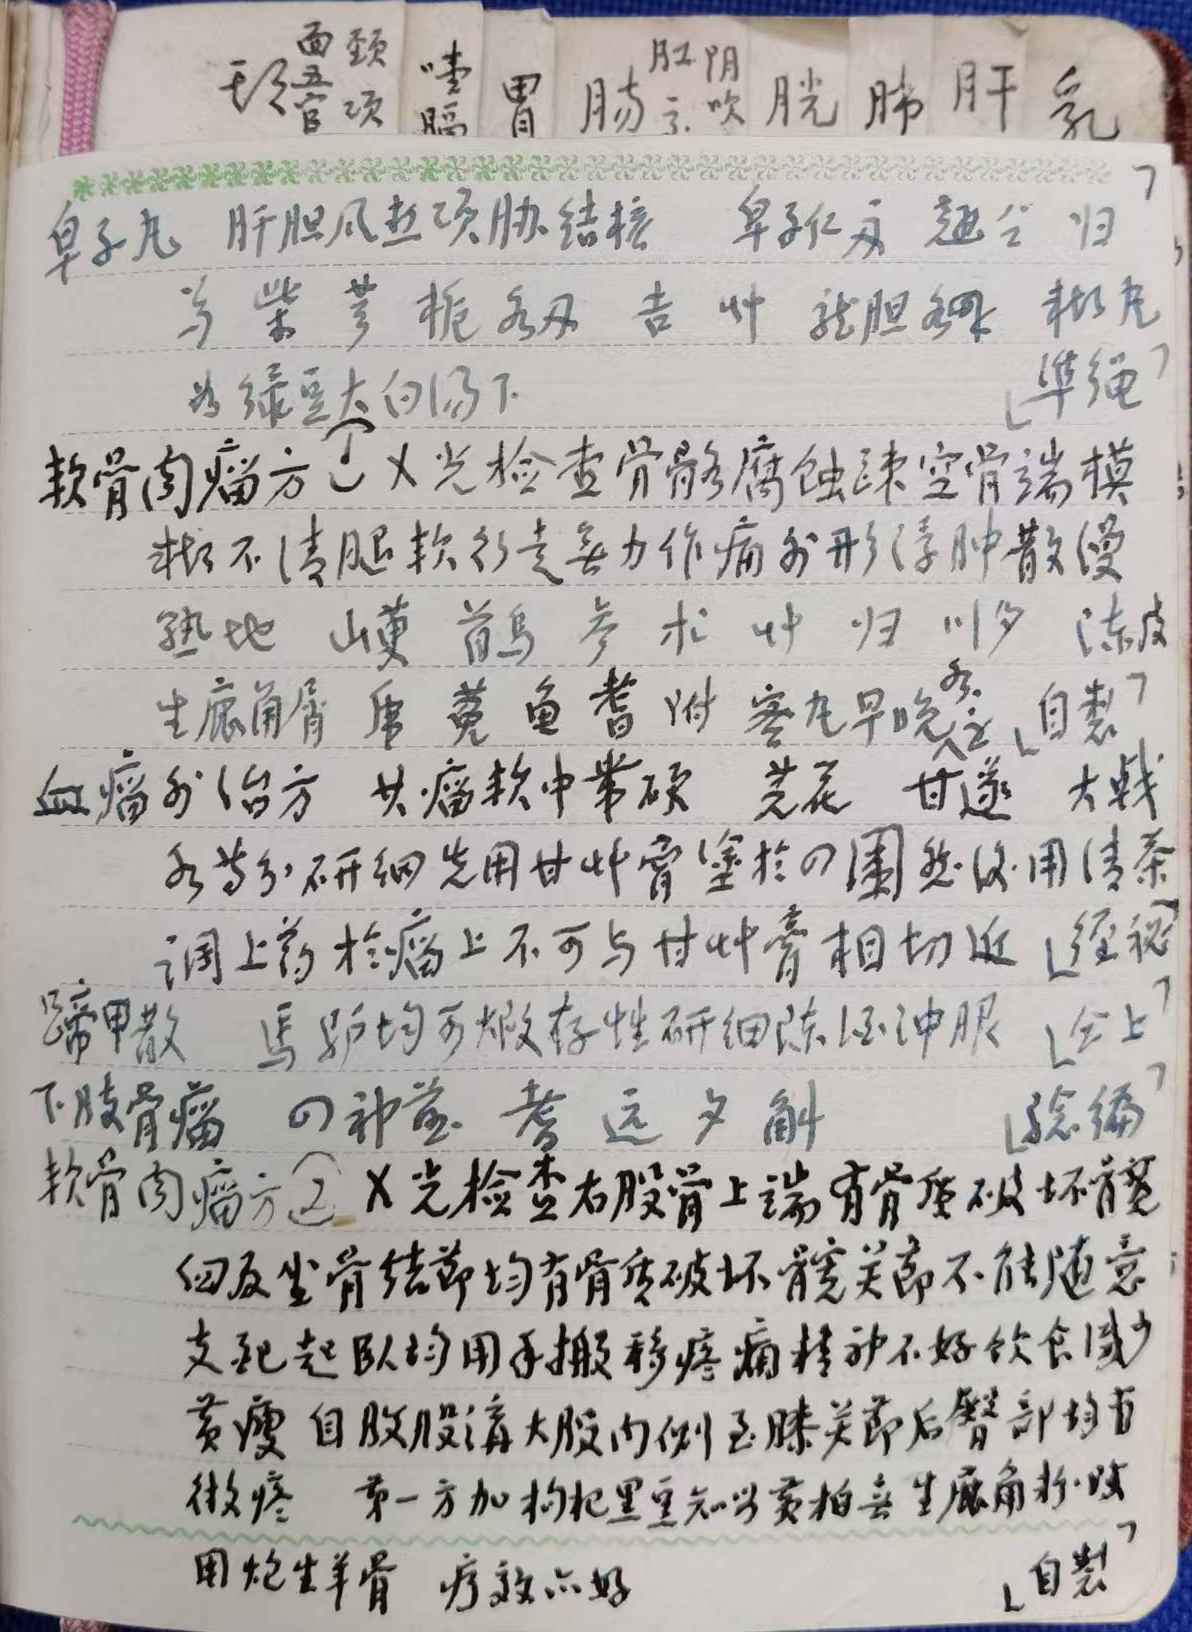 面 頚
五
官 项
嗑
膈
胃
肠
肛 阴
吹
胱
肺
肝
乳
皁子丸 肝胆风热项胁结核 皁子仁 翘 归
芎 柴 芩 栀 吉 艸 龙胆 糊丸
为绿豆大白汤下 「準绳」
軟骨肉瘤方① X光检查骨骼腐蚀疎空骨端模
糊不清腿软行走无力作痛外形浮肿散漫
熟地 山萸 首烏 参 术 艸 归 川夕 陈皮
生鹿角屑 菟 龟 蓍 附 蜜丸早晚各 「自製」
血瘤外治方 其瘤软中带硬 芫花 甘遂 大戟
各等分研细先用甘艸膏塗於四围然後用清茶
调上药於瘤上不可与甘艸膏相切近 「经秘」
蹄甲散 馬驴均可煅存性研细陈酒冲服 「仝上」
下肢骨瘤 四神並 蓍 远 夕 斛 「驗编」
軟骨肉瘤方② X光检查右股骨上端有骨质破坏髋
臼及坐骨结節均有骨质破坏髋关節不能随意
支配起臥均用手搬移疼痛精神不好饮食减少
黄瘦 自股沟大股内侧至膝关節后臀部均有
微疼 第一方加枸杞黑豆知母黄柏去生鹿角粉改
用炮生羊骨 疗效亦好 「自製」